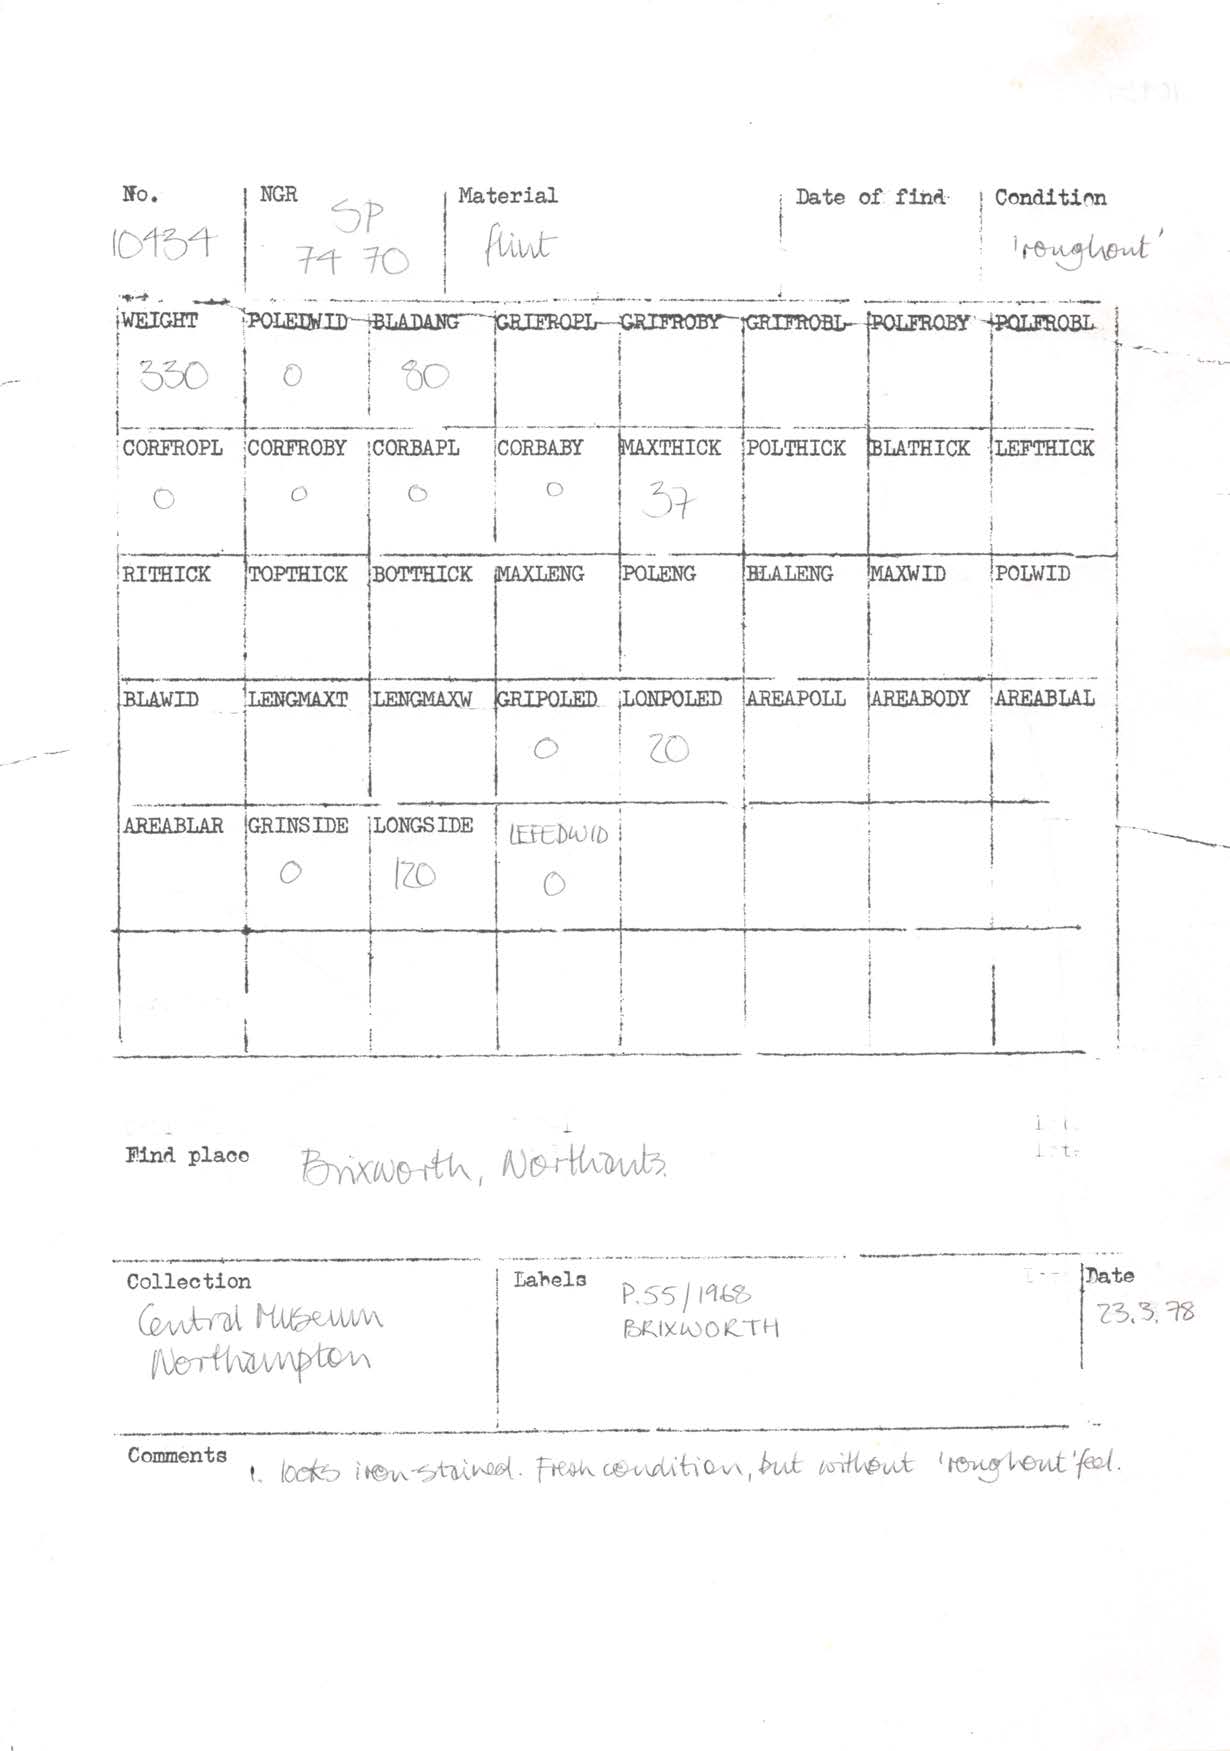 No. NGR Material Date of find Condition
SP
10434 74 70 flint 'roughout'
WEIGHT POLEDWID BLADANG GRIFROPL GRIFROBY GRIFROBL POLFROBY POLFROBL
330 0 80
CORFROPL CORFROBY CORBAPL CORBABY MAXTHICK POLTHICK BLATHICK LEFTHICK
0 0 0 0 37
RITHICK TOPTHICK BOTTHICK MAXLENG POLENG BLALENG MAXWID POLWID
BLAWID LENGMAXT LENGMAXW GRIPOLED LONPOLED AREAPOLL AREABODY AREABLAL
0 20
AREABLAR GRINSIDE LONGSIDE LEFEDWID
0 120 0
Find place Brixworth, Northants.
Collection Labels Date
P.55/1968 23.3.78
Central Museum BRIXWORTH
Northampton
Comments 1. looks iron-stained. Fresh condition, but without 'roughout' feel.